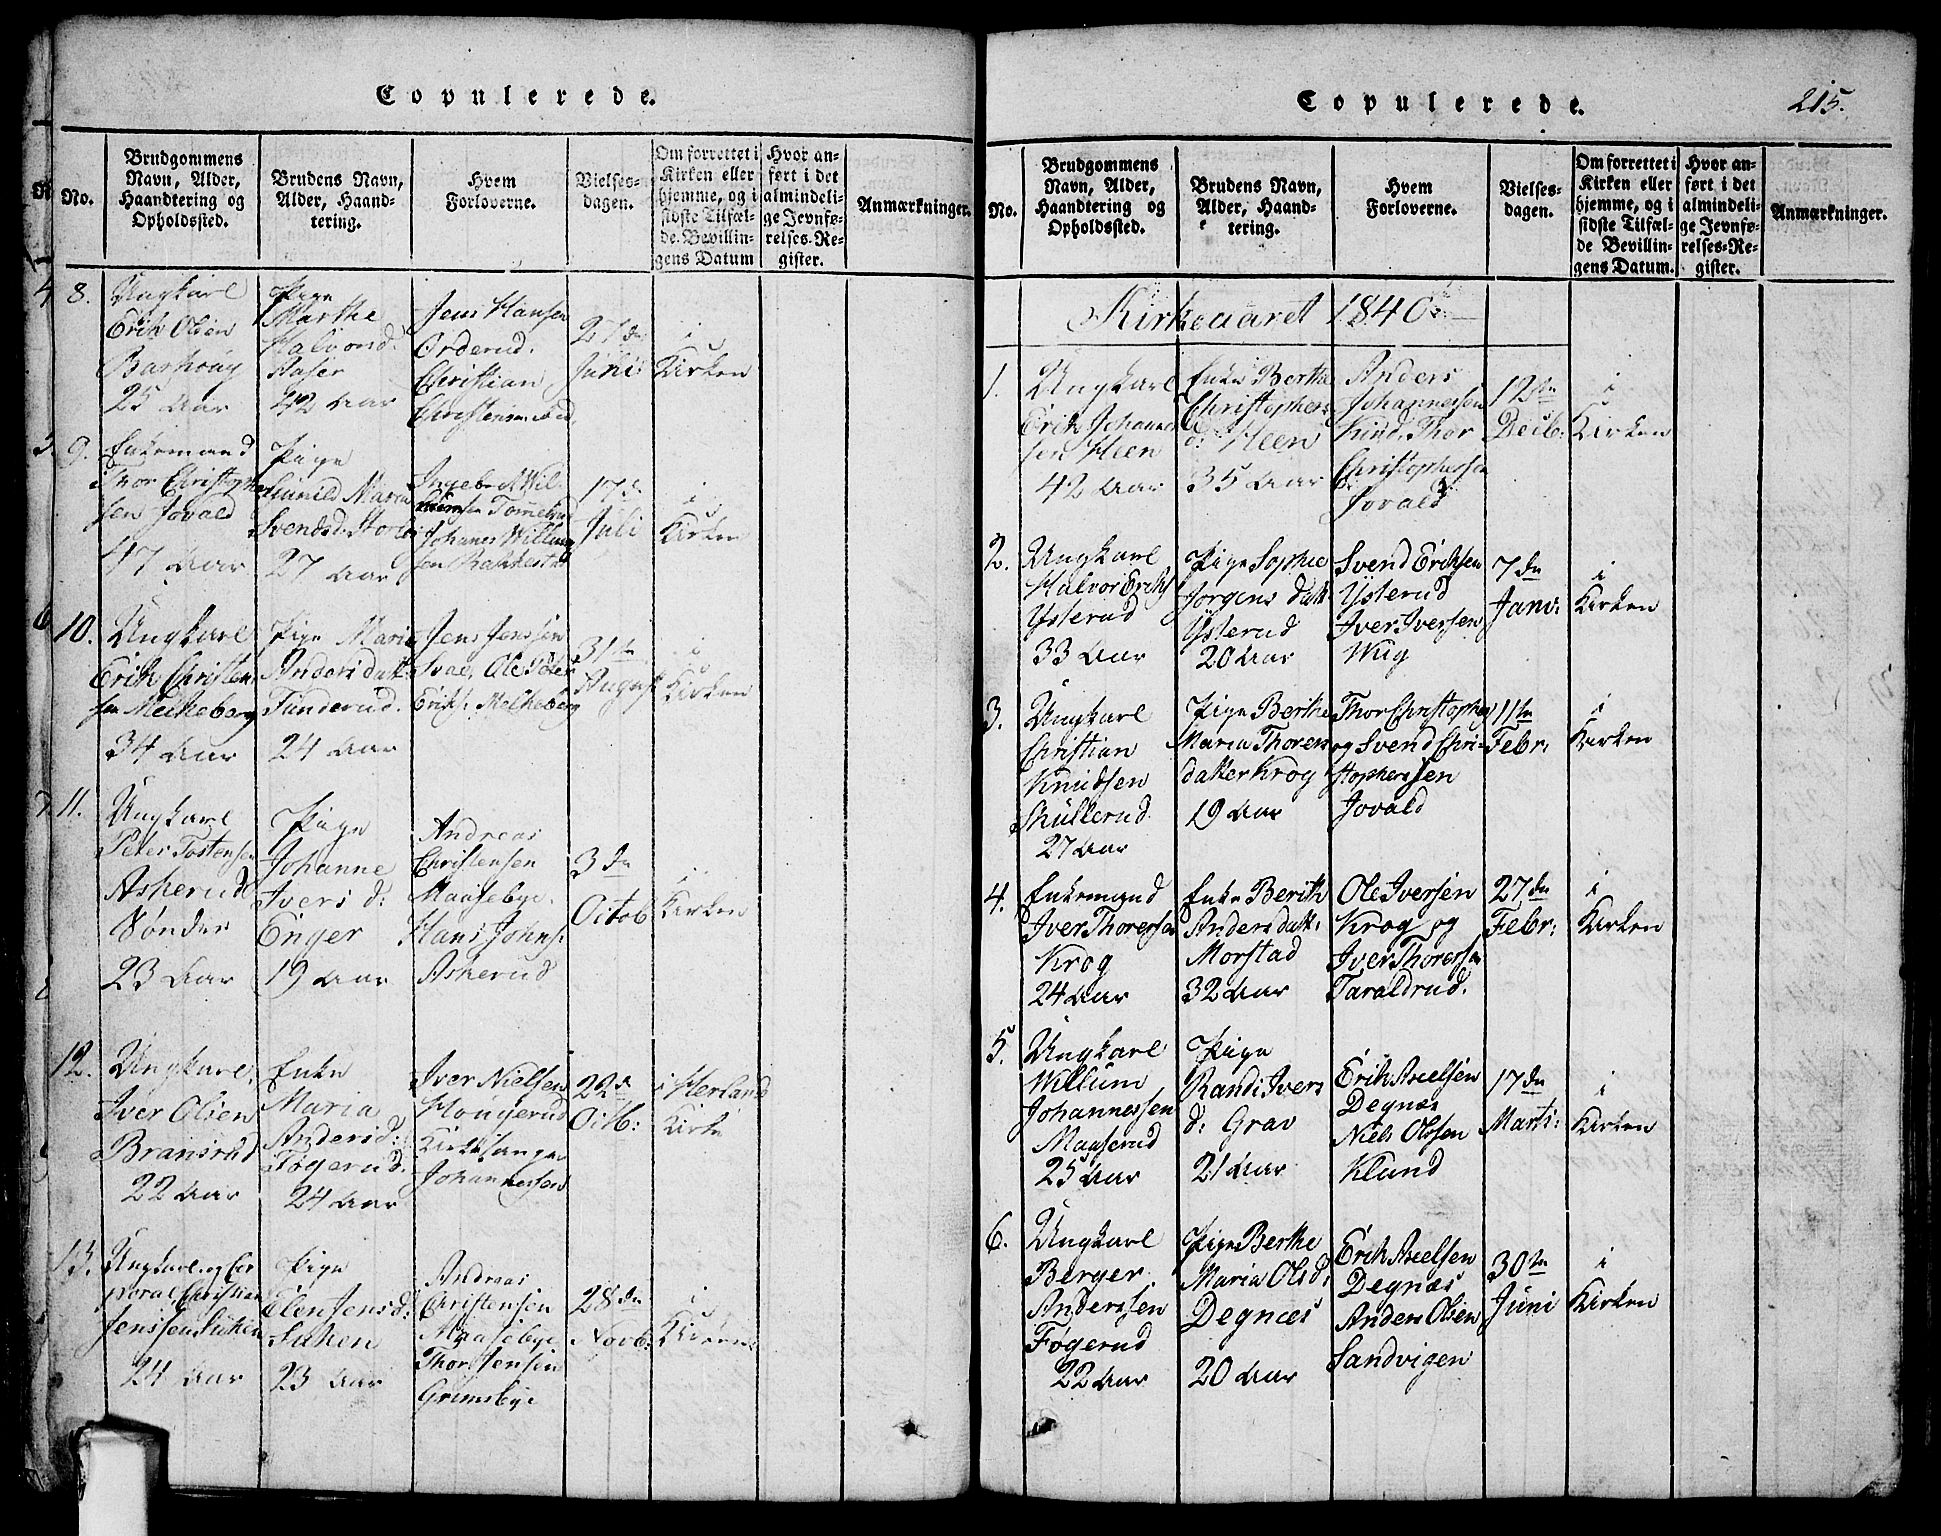 Copulerede.
No.
Brudgommens
Navn, Alder,
Haandtering og
Opholdssted.
Brudens Navn,
Alder, Haand-
tering.
Hvem
Forloverne.
Vielses-
dagen.
Om forrettet i
Kirken eller
hjemme, og i
sidste Tilfæl-
de Bevillin-
gens Datum
Hvor an-
ført i det
almindeli-
ge Jevnfø-
relses-Re-
gister.
Anmærkninger.
8.
Ungkarl
Erik Olsen
25 Aar
Pige
Marthe
Halvorsd.
Haser
42 Aar
Jens Hansen
Orderud.
Christian
27de
Juni
i
Kirken
9.
Enkemand
Thor Christopher
sen Jovald
47 Aar
Pige
Gunild Maria
Svendsd.
27 Aar
17de
Juli
i
Kirken
10.
Ungkarl
Erik Christen
sen Melkeberg
34 Aar
Pige Maria
Andersdatt.
Tunderud.
24 Aar
Jens Jenssen
Svae, Ole
Eriks. Melkeberg
31te
August
i
Kirken
11.
Ungkarl
Peter Tostensen
Askerud
Sønder
23 Aar
Pige
Johanne
Ivers d:
Enger
19 Aar
Andreas
Christensen
Maasebye.
Hans Johns:
Askerud
3de
Octob
i
Kirken
12.
Ungkarl
Iver Olsen
Bransrud
22 Aar
Enke
Maria
Andersd:
Føgerud.
24 Aar
Iver Nielsen
Hougerud
Kirkesanger
Johannessen
22de
Octb:
i Herland
Kirke
13.
Ungkarl og Cor
poral Christian
Jenssen
24 Aar
Pige
Elen Jensd:
23 Aar
Andreas
Christensen
Maasebye
Thor Jensen
Grimsbye
28de
Novb:
i
Kirken
Copulerede.
215.
No.
Brudgommens
Navn, Alder,
Haandtering og
Opholdssted.
Brudens Navn,
Alder, Haand-
tering.
Hvem
Forloverne.
Vielses-
dagen.
Om forrettet i
Kirken eller
hjemme, og i
sidste Tilfæl-
de Bevillin-
gens Datum.
Hvor an-
ført i det
almindeli-
ge Jevnfø-
relses-Re-
gister.
Anmærkninger.
Kirkeaaret 1840
1.
Ungkarl
Erik Johannes
sen Heen
42 Aar
Enke Berthe
Christophers
d: Heen
35 Aar
Anders
Johannessen
Kind, Thor
Christophersen
Jovald
12te
Decb:
i
Kirken
2.
Ungkarl
Halvor Eriks
Ysterud
33 Aar
Pige Sophie
Jørgens datt
Ysterud
20 Aar
Svend Eriksen
Ysterud
Iver Iversen
Wug
7de
Janv:
i
Kirken
3.
Ungkarl
Christian
Knudsen
Skullerud.
27 Aar
Pige Berthe
Maria Thores
datter Krog
19 Aar
Thor Christophers
og Svend Chri-
stophersen
Jovald
11te
Febr:
i
Kirken
4.
Enkemand
Iver Thoressen
Krog
24 Aar
Enke Berith
Andersdatt:
Morstad
32 Aar
Ole Iversen
Krog og
Iver Thoressen
Taraldrud.
27de
Febr:
i
Kirken
5.
Ungkarl
Willum
Johannessen
Maaserud
25 Aar
Pige
Randi Ivers
d: Grav
21 Aar
Erik Axelsen
Degnæs
Niels Olssen
Klund
17de
Marti:
i
Kirken
6.
Ungkarl
Berger
Anderssen
Føgerud
22 Aar
Pige Berthe
Maria Olsd:
Degnæs
20 Aar
Erik Axelsen
Degnæs
Anders Olsen
Sandvigen
30te
Juni
i
Kirken